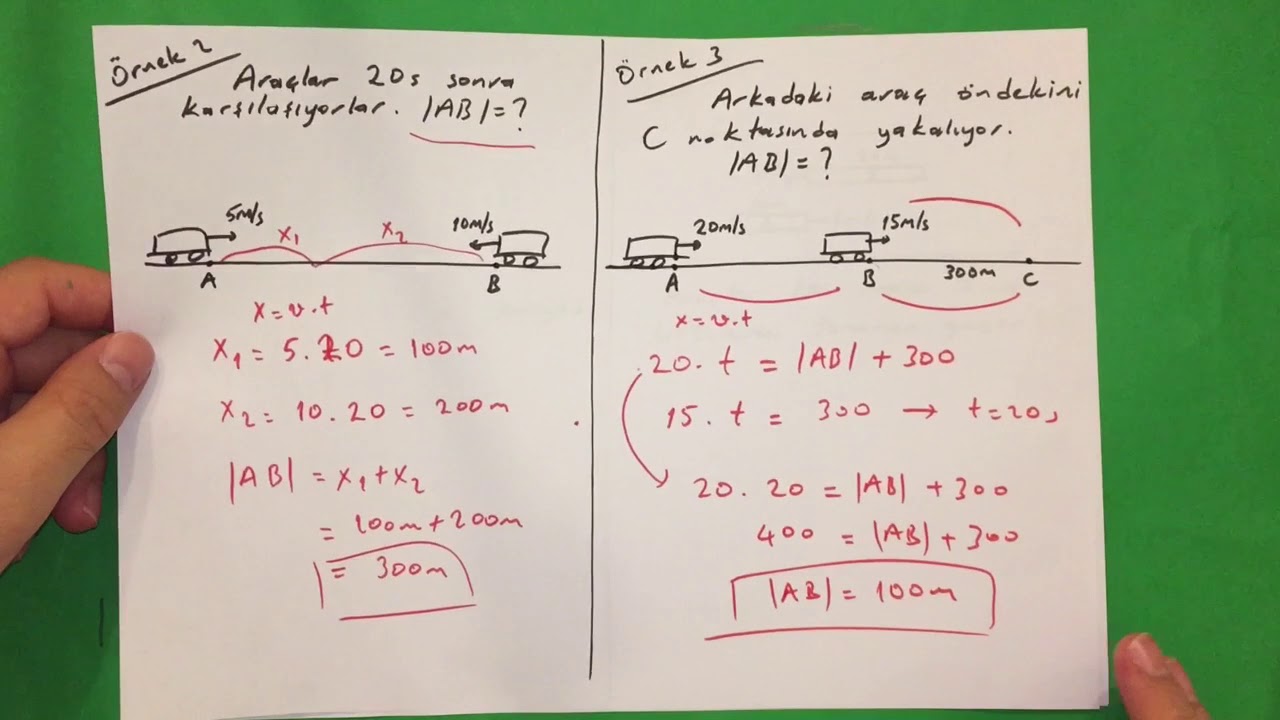 Örnek 2
Araçlar 20s sonra
karşılaşıyorlar. |AB|=?
5m/s
10m/s
x₁
x₂
A
B
x=v.t
x₁ = 5.20 = 100m
x₂ = 10.20 = 200m
|AB| = x₁+x₂
= 100m+200m
= 300m
Örnek 3
Arkadaki araç öndekini
C noktasında yakalıyor.
|AB|=?
20m/s
15m/s
A
B
300m
C
x=v.t
20.t = |AB| + 300
15.t = 300 → t=20s
20.20 = |AB| + 300
400 = |AB| + 300
|AB| = 100m